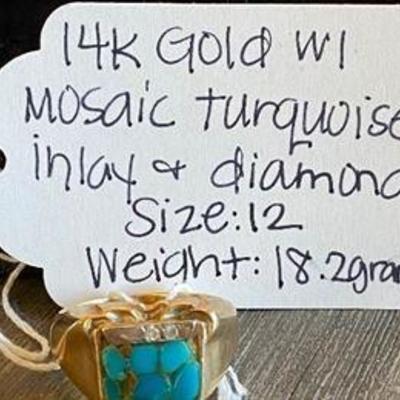 14K Gold W/
Mosaic Turquoise
inlay + diamond
Size: 12
Weight: 18.2gram